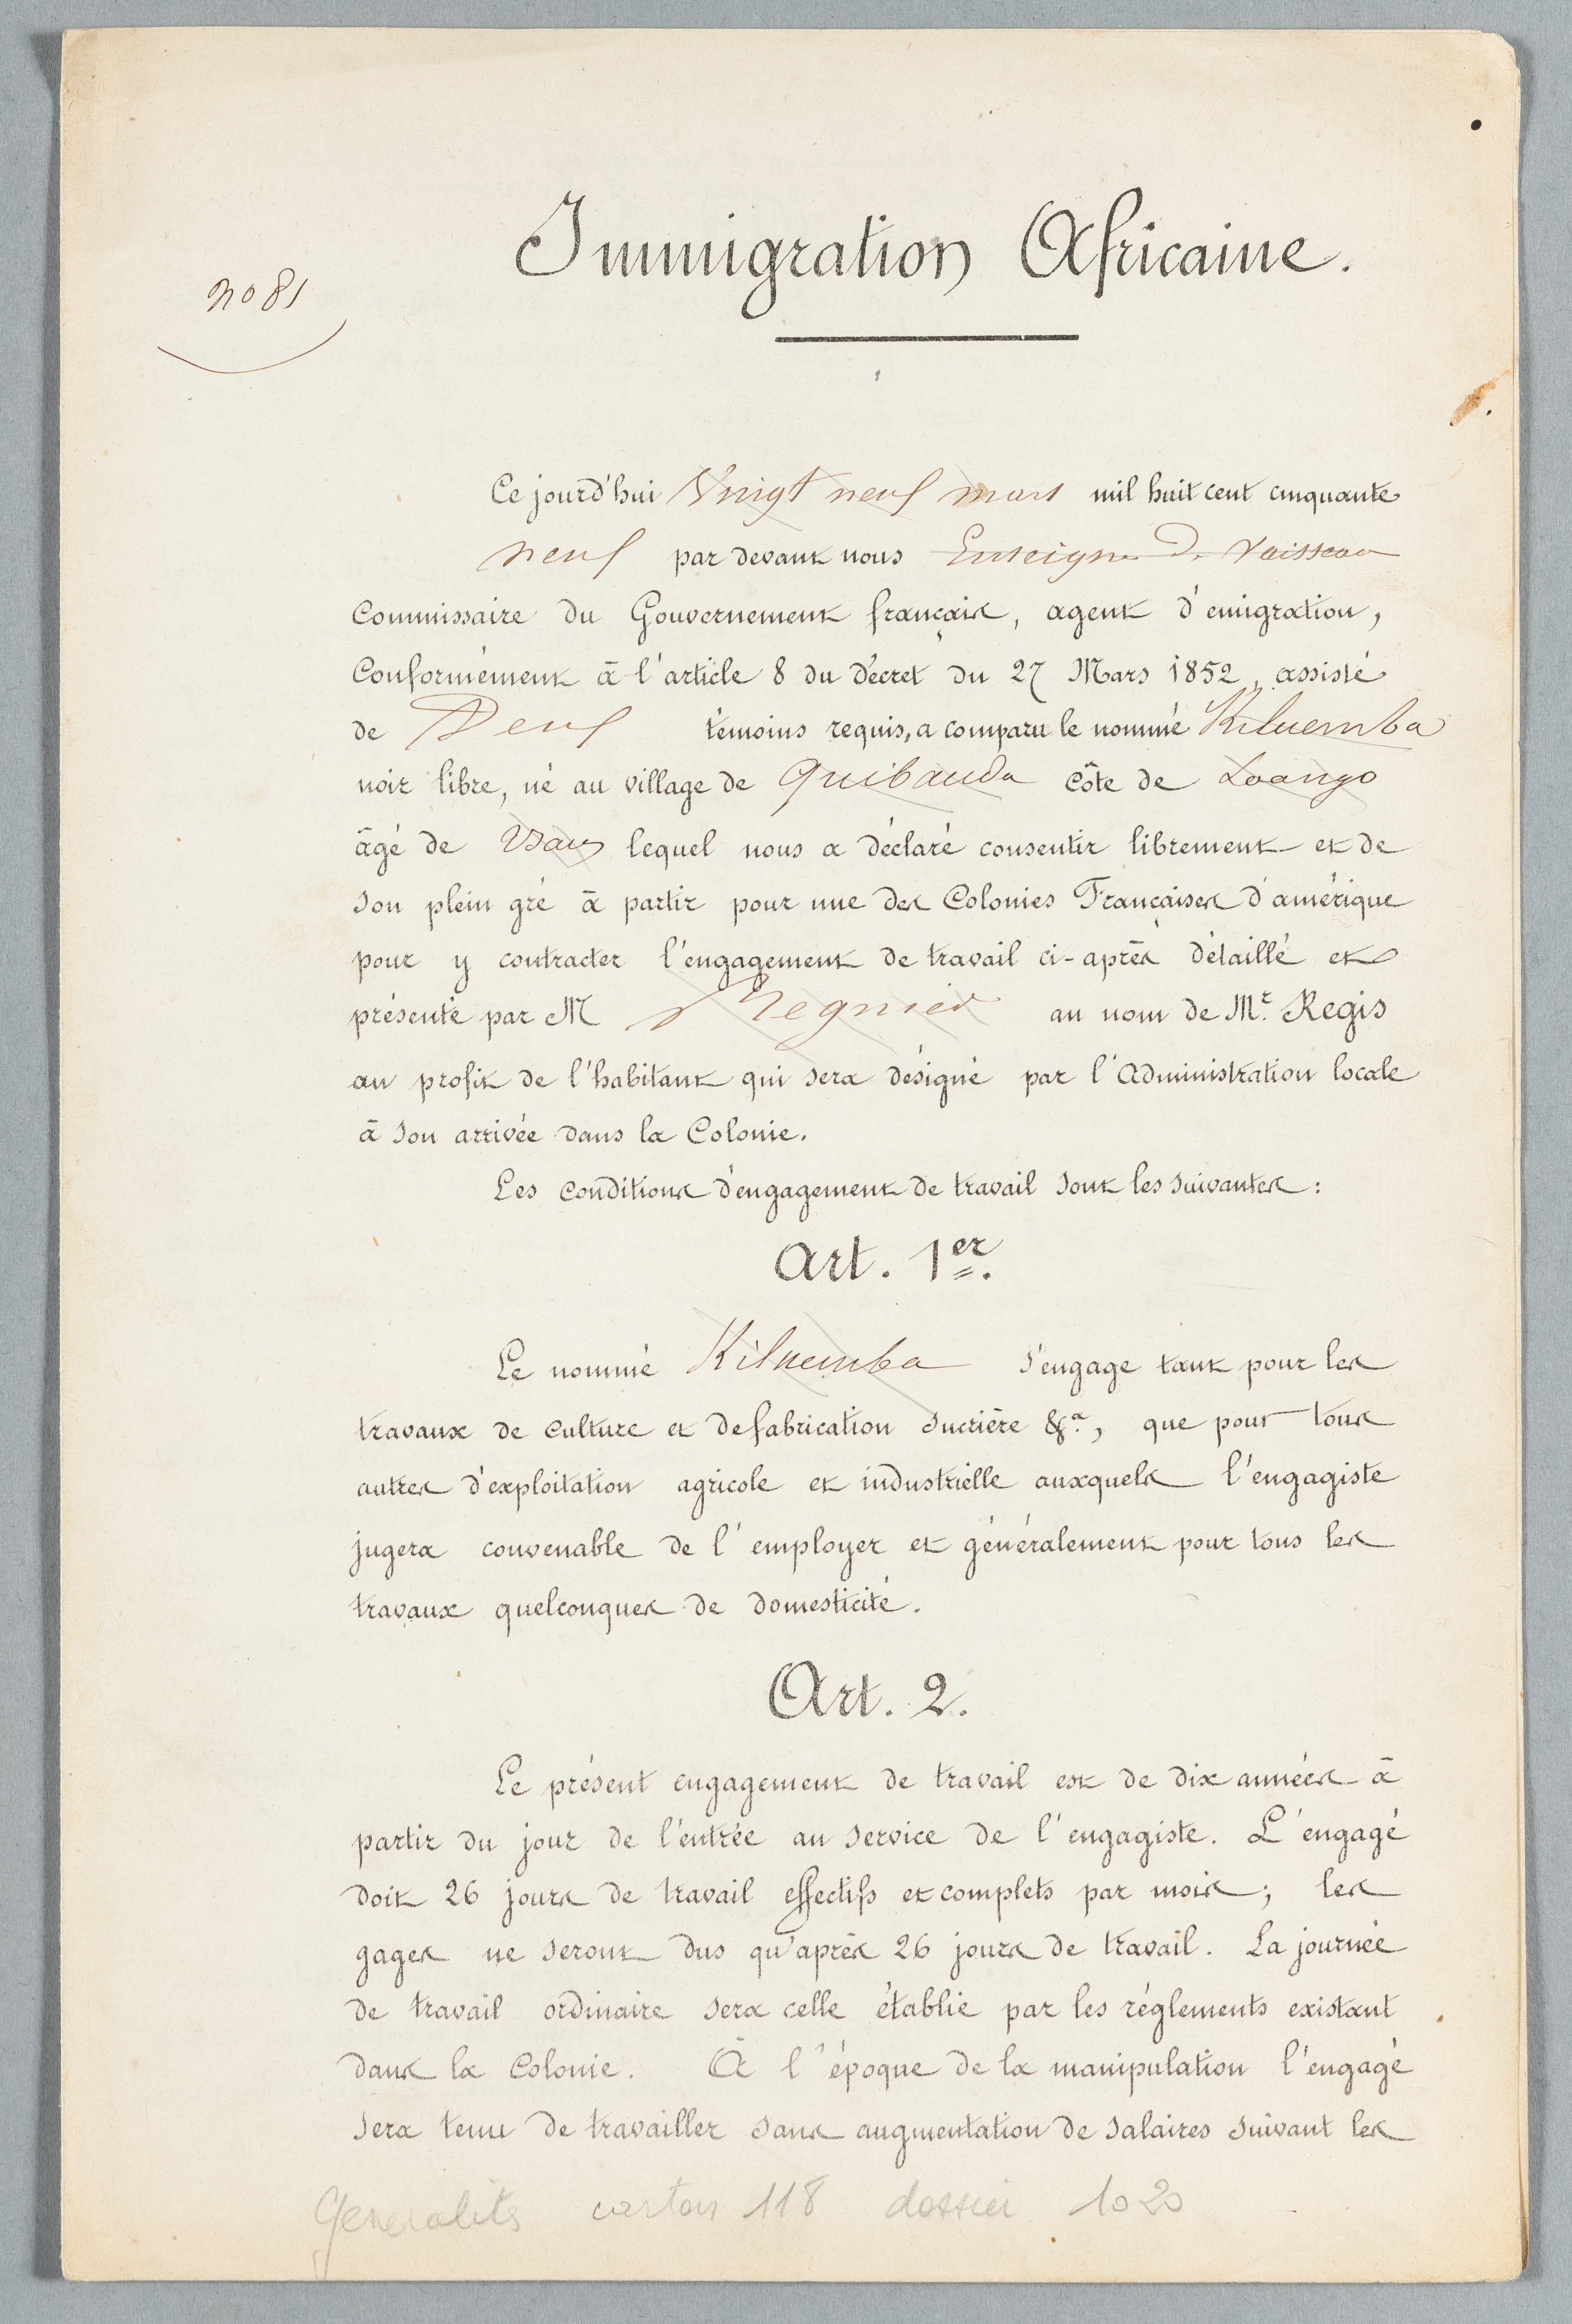 Immigration Africaine.
no 81
Ce jourd'hui Vingt neuf mars mil huit cent cinquante
neuf par devant nous Enseigne de Vaisseau
Commissaire du Gouvernement français, agent d'émigration,
Conformément à l'article 8 du décret du 27 Mars 1852, assisté
de Deux témoins requis, a comparu le nommé Kiluemba
noir libre, né au village de Quibanda Côte de Loango
âgé de lequel nous a déclaré consentir librement et de
son plein gré à partir pour une des Colonies Françaises d'amérique
pour y contracter l'engagement de travail ci-après détaillé et
présenté par M Regnier au nom de Mr. Regis
au profit de l'habitant qui sera désigné par l'Administration locale
à son arrivée dans la Colonie.
Les conditions d'engagement de travail sont les suivantes :
Art. 1er.
Le nommé Kiluemba s'engage tant pour les
travaux de culture et de fabrication sucrière &a, que pour tous
autres d'exploitation agricole et industrielle auxquels l'engagiste
jugera convenable de l'employer et généralement pour tous les
travaux quelconques de domesticité.
Art. 2.
Le présent engagement de travail est de dix années à
partir du jour de l'entrée au service de l'engagiste. L'engagé
doit 26 jours de travail effectifs et complets par mois ; les
gages ne seront dus qu'après 26 jours de travail. La journée
de travail ordinaire sera celle établie par les réglements existant
dans la Colonie. A l'époque de la manipulation l'engagé
sera tenu de travailler sans augmentation de salaires suivant les
Generalités carton 118 dossier 1020